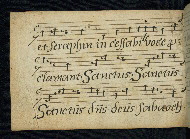 et seraphin incessabili voce p
clamant Sanctus Sanctus
Sanctus dñs deus sabaoth